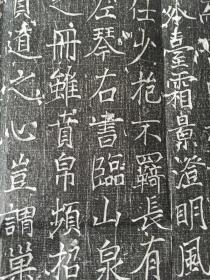 臺霜景澄明風
任少苞不羇長有
左琴右書臨山泉
之冊雖賁帛頻招
道之心豈謂巢